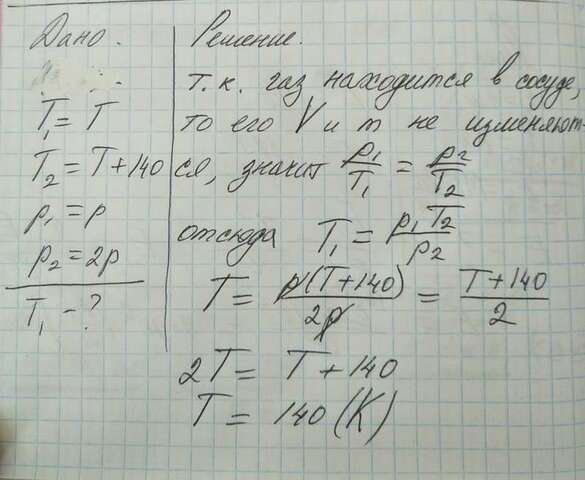 Дано.
T₁ = T
T₂ = T+140
p₁ = p
p₂ = 2p
T₁ - ?
Решение.
т.к. газ находится в сосуде,
то его V и m не изменяют-
ся, значит p₁/T₁ = p₂/T₂
отсюда T₁ = p₁T₂/p₂
T = p(T+140)/2p = T+140/2
2T = T+140
T = 140 (K)